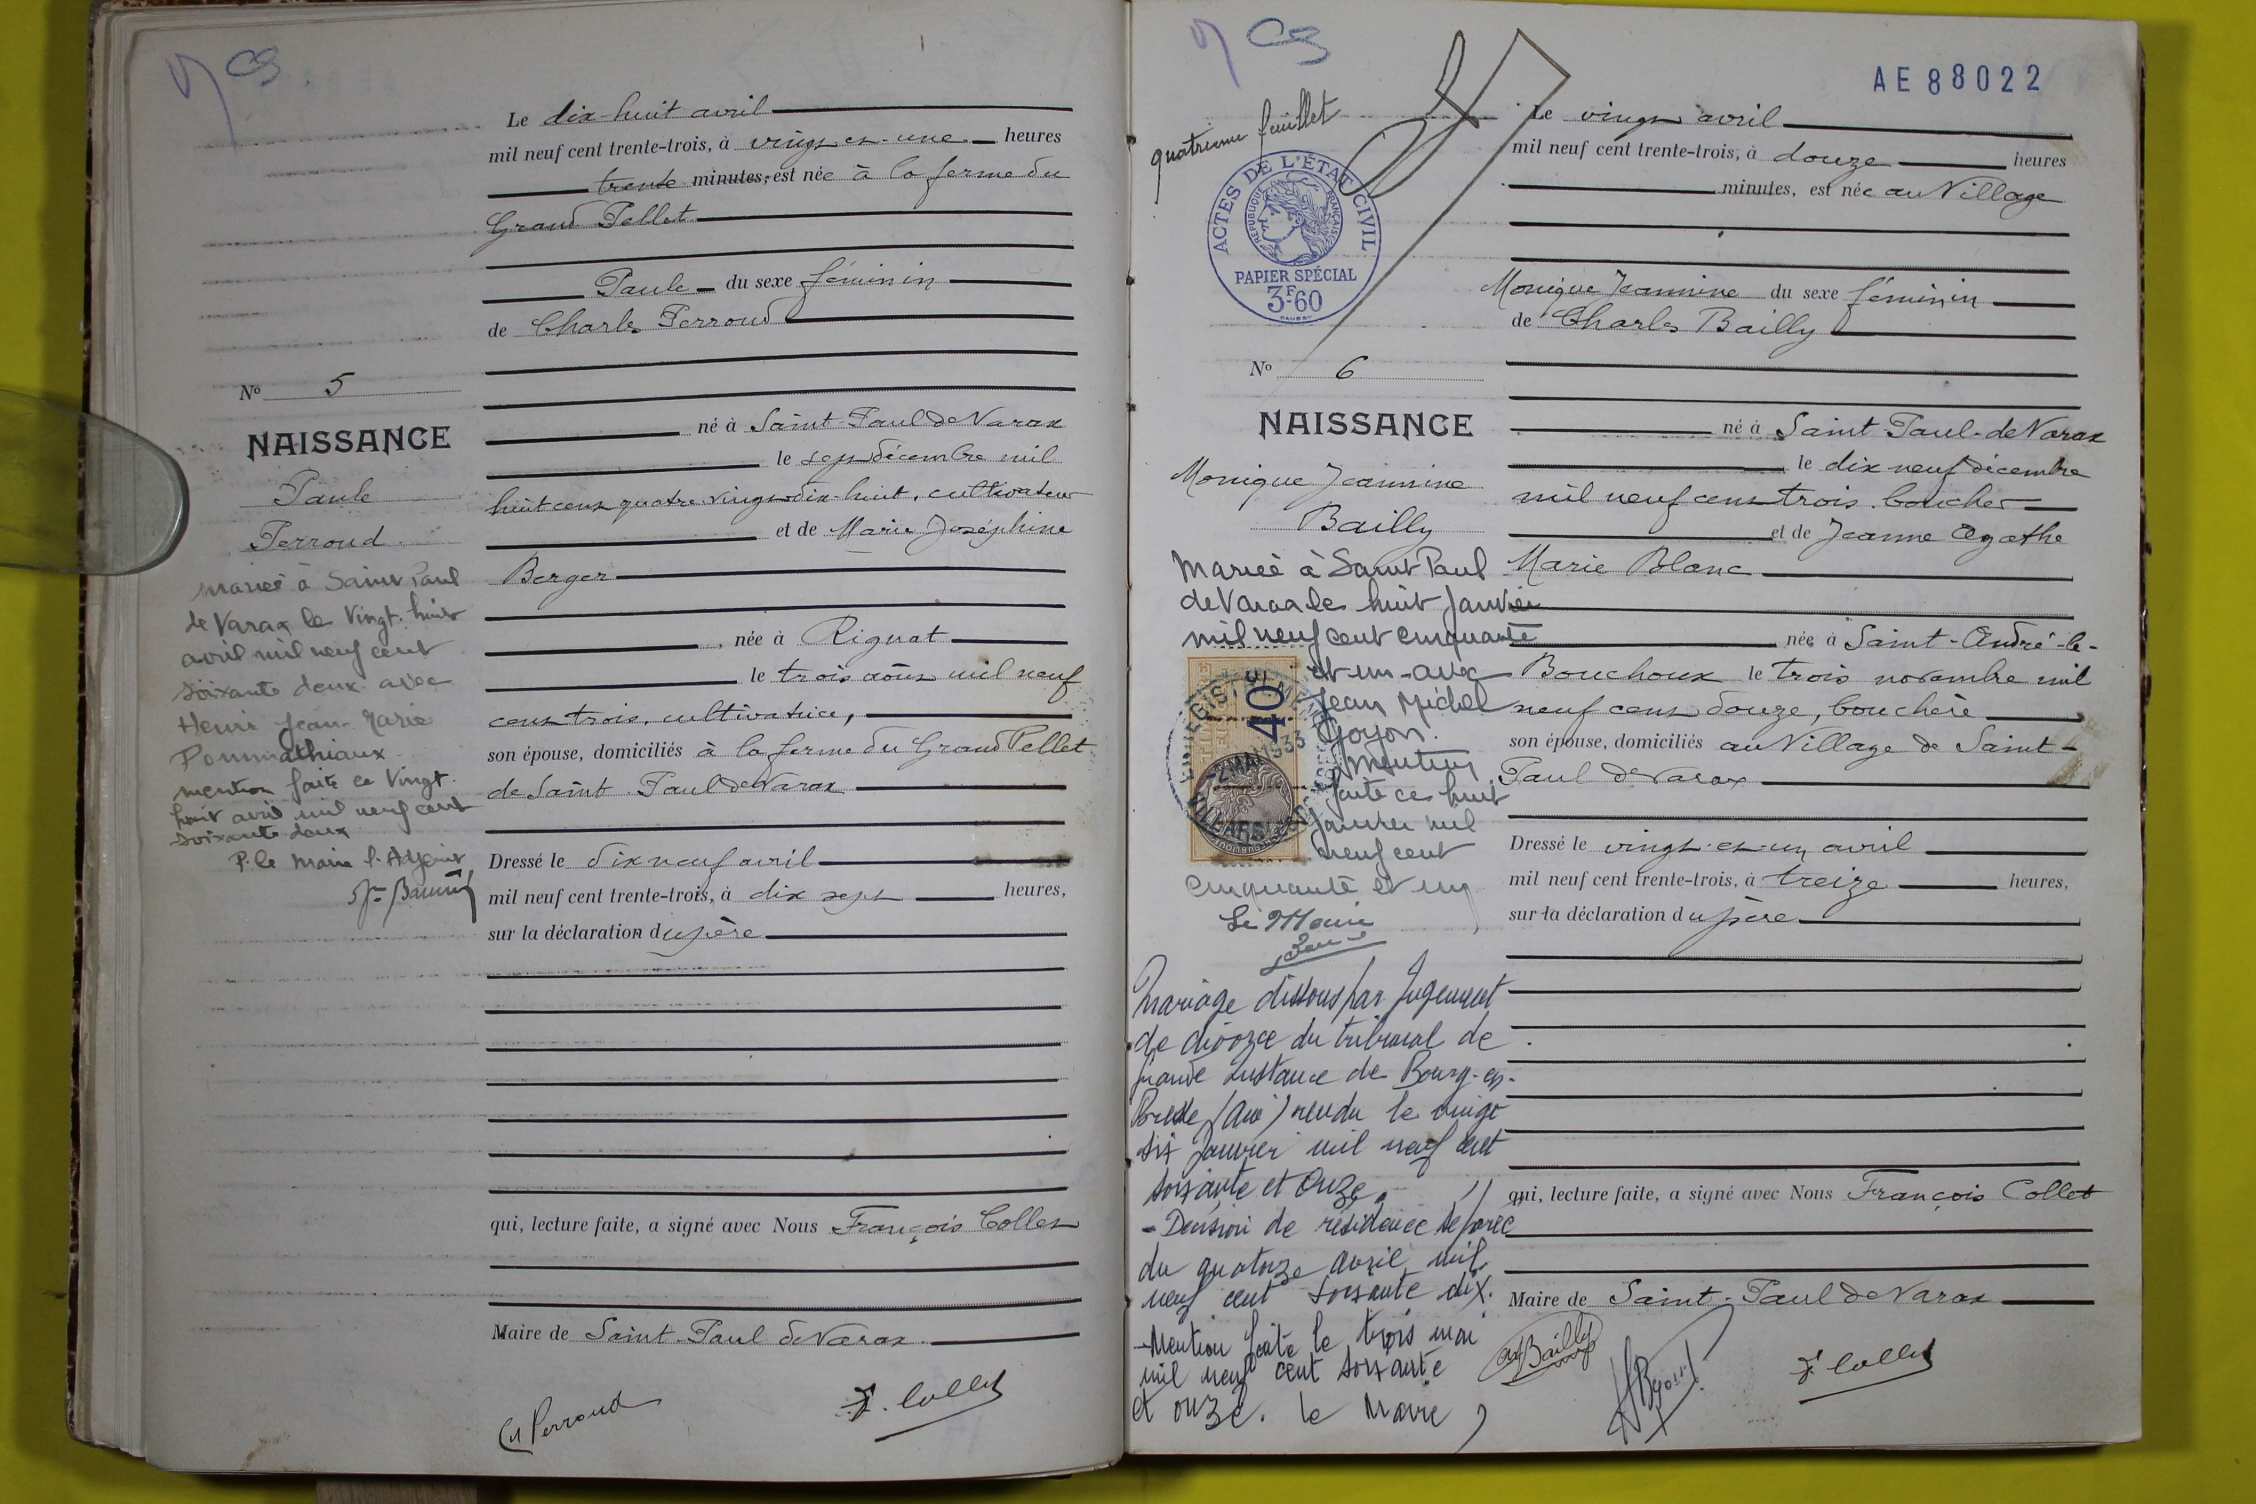 Le dix-huit avril
mil neuf cent trente-trois, à vingt et une heures
trente minutes, est née à la ferme du
Grand Pellet
Paule du sexe féminin
de Charles Perroud
No 5
NAISSANCE
Paule
Perroud
né à Saint-Paul de Varax
le sept décembre mil
huit cent quatre vingt dix-huit, cultivateur
et de Marie Joséphine
Berger
née à Rignat
le trois août mil neuf
cent trois, cultivatrice,
son épouse, domiciliés à la ferme du Grand Pellet
de Saint Paul de Varax
Dressé le dix neuf avril
mil neuf cent trente-trois, à dix sept heures,
sur la déclaration du père
qui, lecture faite, a signé avec Nous François Collet
Maire de Saint-Paul de Varax
Ch Perroud
F. Collet
Mariée à Saint Paul
de Varax le Vingt-huit
avril mil neuf cent
soixante deux avec
Henri Jean-Marie
Pommathiaux
mention faite ce Vingt
huit avril mil neuf cent
soixante deux
P. le Maire l'Adjoint
AE 88022
quatrième feuillet
ACTES DE L'ÉTAT CIVIL
RÉPUBLIQUE FRANÇAISE
PAPIER SPÉCIAL
3F60
Le vingt avril
mil neuf cent trente-trois, à douze heures
minutes, est née au Village
Monique Jeannine du sexe féminin
de Charles Bailly
No 6
NAISSANCE
Monique Jeannine
Bailly
né à Saint-Paul-de Varax
le dix neuf décembre
mil neuf cent trois, boucher
et de Jeanne Agathe
Marie Blanc
née à Saint-André-le-
Bouchoux le trois novembre mil
neuf cent douze, bouchère
son épouse, domiciliés au Village de Saint-
Paul de Varax
Dressé le vingt et un avril
mil neuf cent trente-trois, à treize heures,
sur la déclaration du père
qui, lecture faite, a signé avec Nous François Collet
Maire de Saint-Paul de Varax
Bailly
F. Collet
Mariée à Saint Paul
de Varax le huit Janvier
mil neuf cent cinquante
et un avec
Jean Michel
Goyon.
Mention
faite ce huit
janvier mil
neuf cent
cinquante et un
Le Maire
40
Mariage dissous par Jugement
de divorce du tribunal de
Grande Instance de Bourg-en-
Bresse (Ain) rendu le vingt
six Janvier mil neuf cent
soixante et Onze.
- Décision de résidence séparée
du quatorze avril mil
neuf cent soixante dix.
- Mention faite le trois mai
mil neuf cent soixante
et onze. le Maire